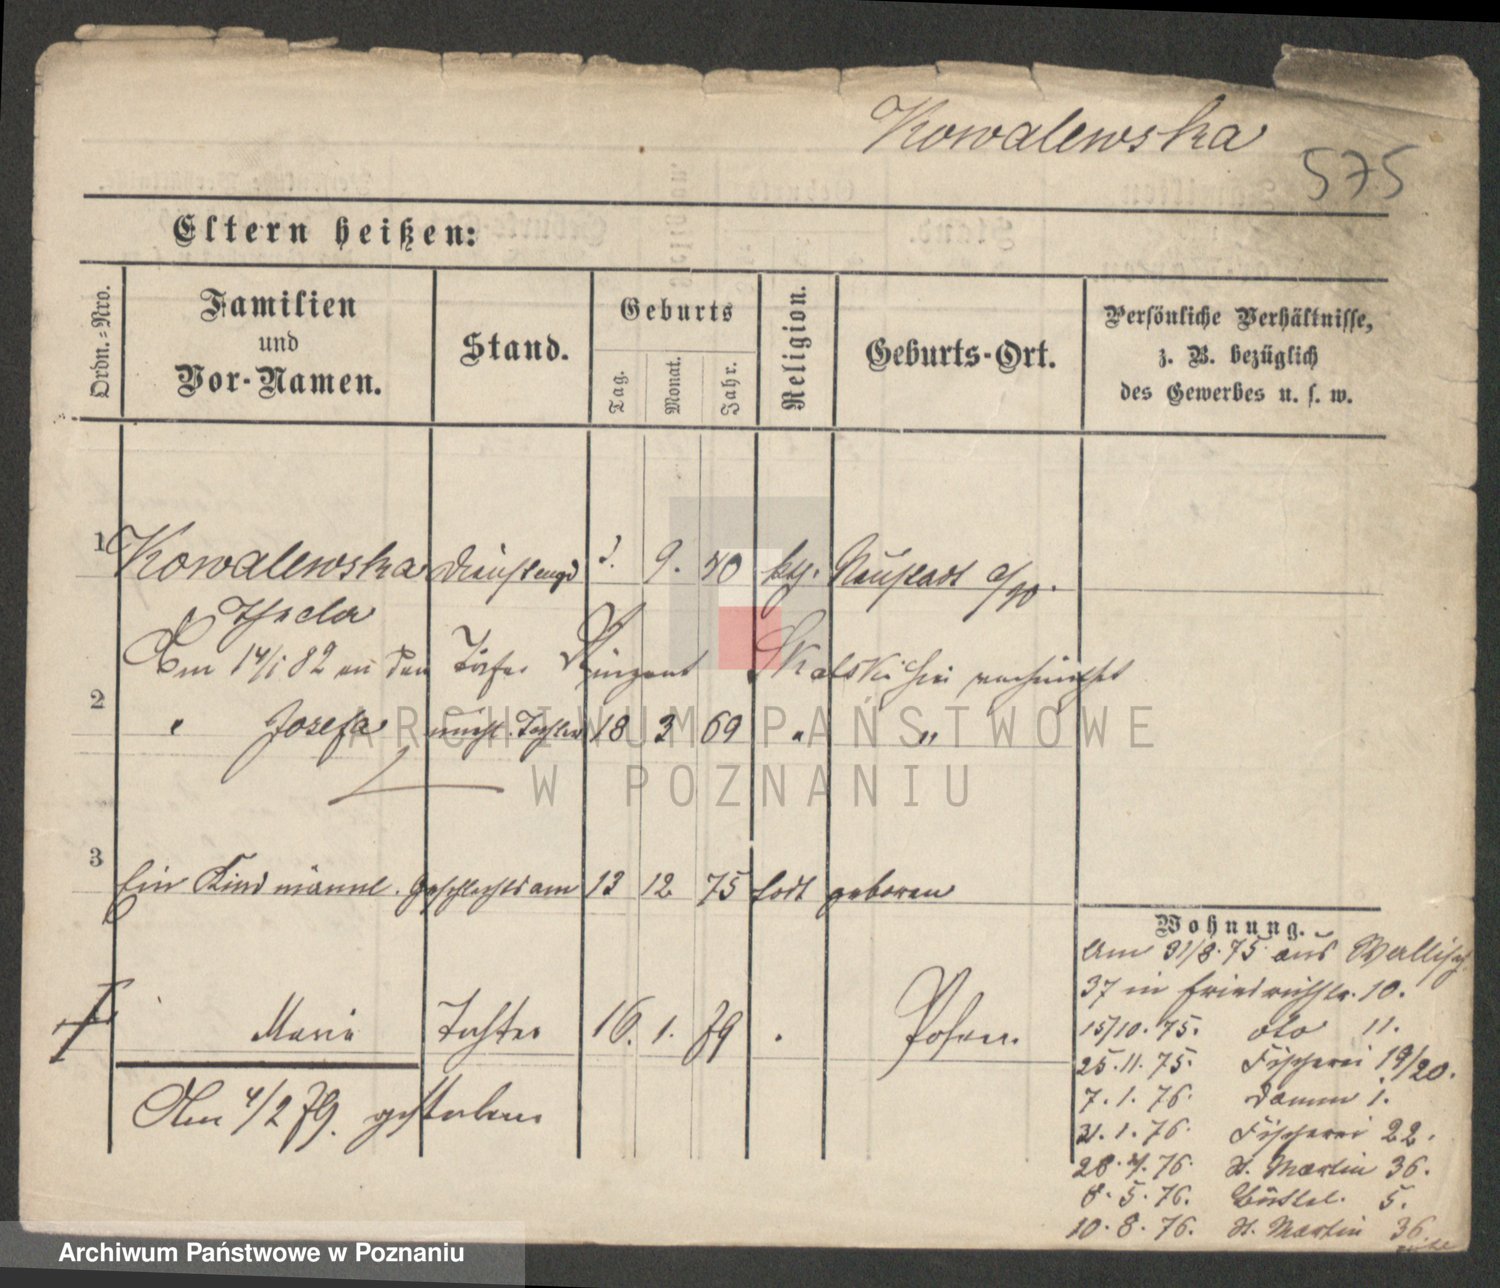 Kowalewska
575
Eltern heißen:
Ordn.=Nro.
Familien
und
Vor-Namen.
Stand.
Geburts
Tag.
Monat.
Jahr.
Religion.
Geburts-Ort.
Persönliche Verhältnisse,
z. B. bezüglich
des Gewerbes u. s. w.
1 Kowalewska 9. 40 kth. Neustadt a/W.
Thecla
Am 14/1 82 an den Vinzent Skalski
2 " Josefa unehl. Tochter 18 3 69 " "
3 Ein Kind männl. Geschlechts am 13 12 75 todt geboren
Maria Tochter 16. 1. 79 Posen.
Am 4/2 79. gestorben
Wohnung.
Am 31/8. 75 aus Wallisch.
37 in Friedrichstr. 10.
15/10. 75. dto 11.
25. 11. 75. Fischerei 19/20.
7. 1. 76. Damm 1.
31. 1. 76. Fischerei 22.
28. 4. 76. St. Martin 36.
8. 5. 76. Büttel. 5.
10. 8. 76. St. Martin 36.
ARCHIWUM PAŃSTWOWE
W POZNANIU
Archiwum Państwowe w Poznaniu